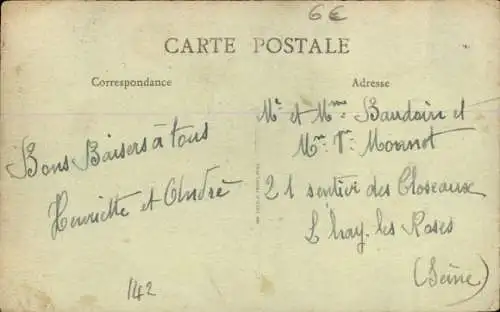 6€
CARTE POSTALE
Correspondance
Adresse
Bons Baisers à tous
Henriette et André
142
Mr et Mme Baudoin et
Mme Vve Monnot
21 sentier des Closeaux
L'hay-les Roses
(Seine)